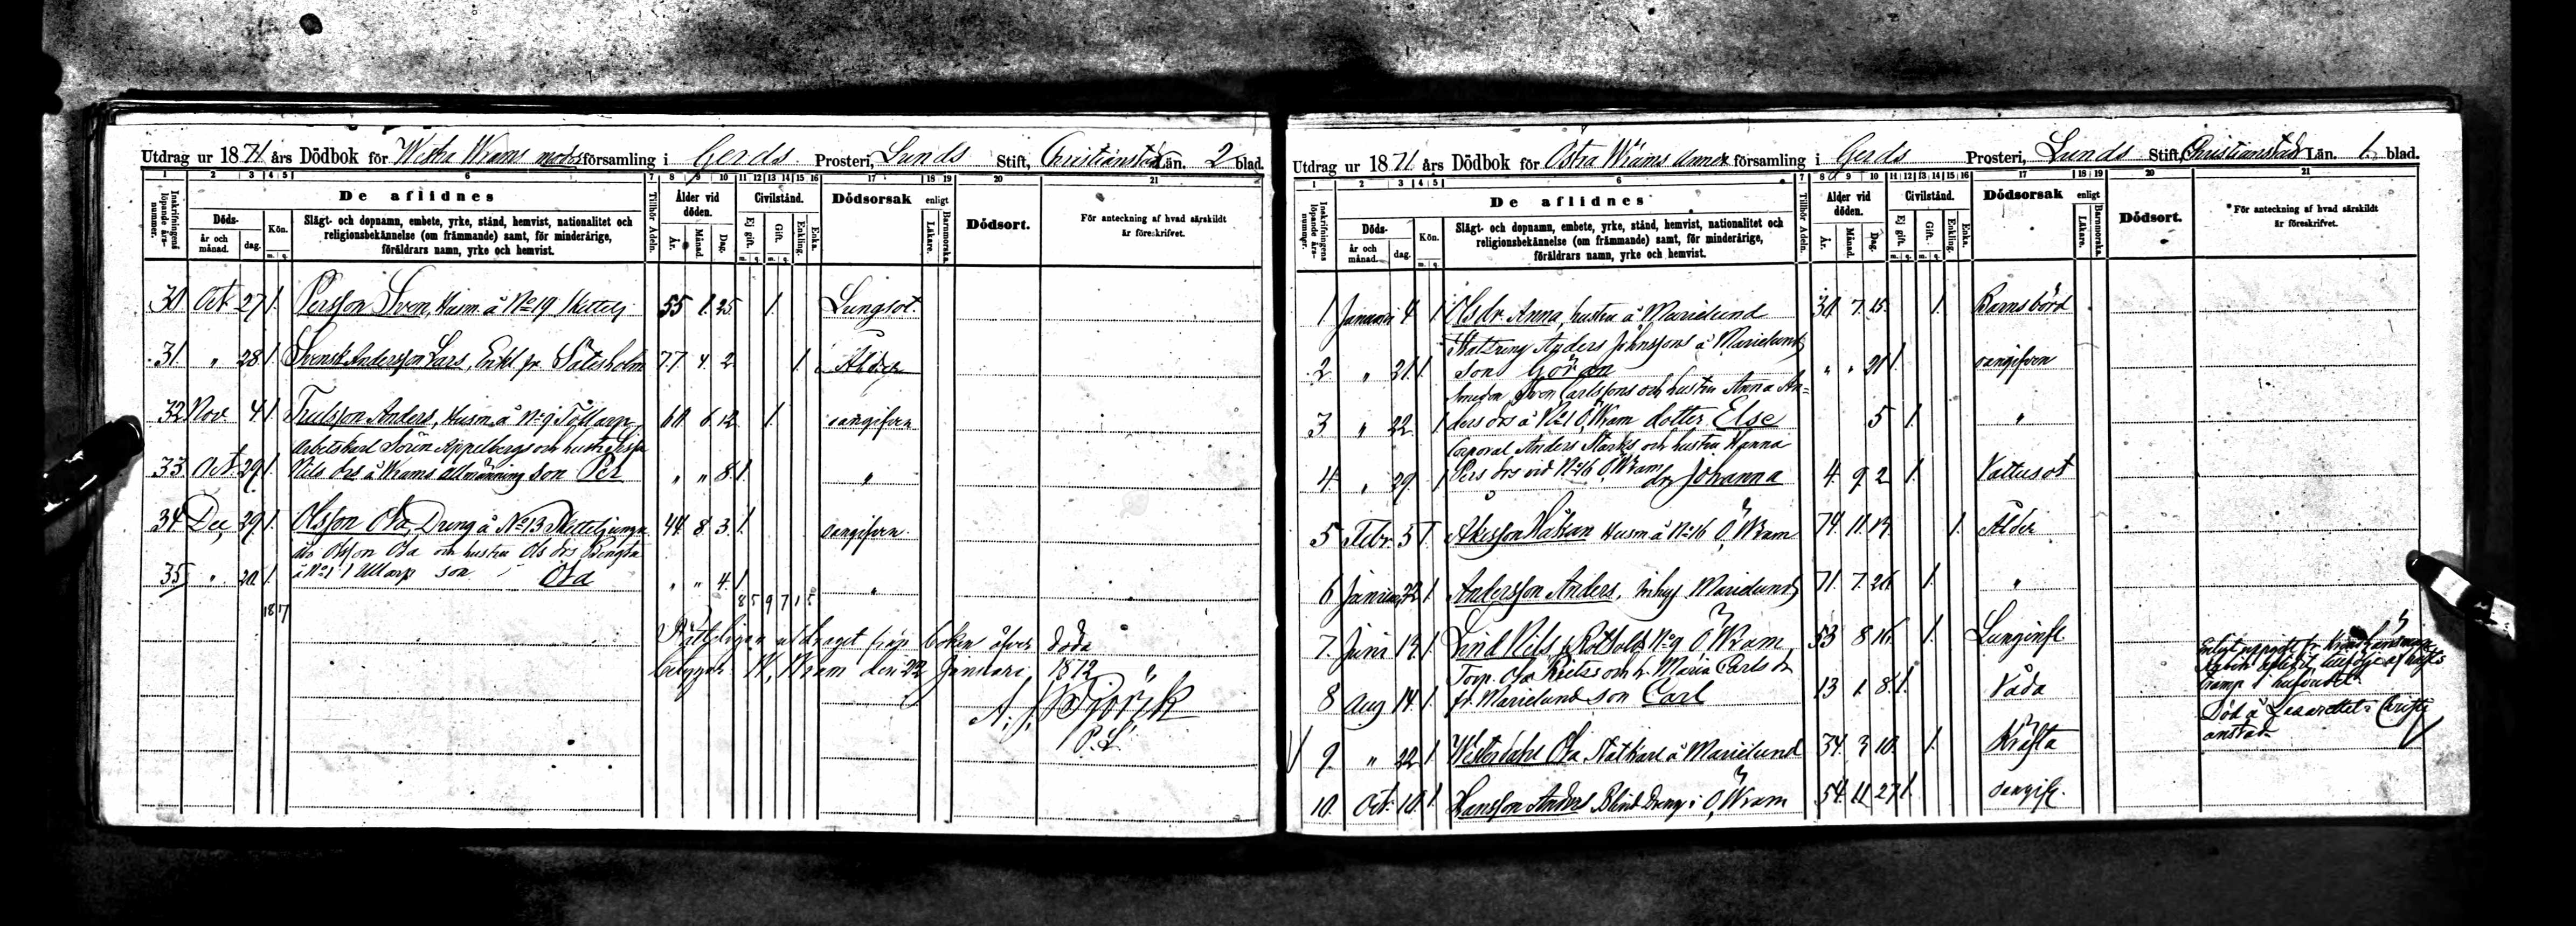 Utdrag ur 1871 års Dödbok för Westra Wrams moderförsamling i Gerds Prosteri, Lunds Stift, Christianstads Län. 2 blad.
1 2 3 4 5 6 7 8 9 10 11 12 13 14 15 16 17 18 19 20 21
Inskrifningens löpande års-nummer.
De aflidnes
Döds-
år och månad.
dag.
Kön.
m. q.
Slägt- och dopnamn, embete, yrke, stånd, hemvist, nationalitet och
religionsbekännelse (om främmande) samt, för minderårige,
föräldrars namn, yrke och hemvist.
Tillhör Adeln.
Ålder vid döden.
År. Månad. Dag.
Civilstånd.
Ej gift. Gift. Enkling. Enka.
m. q. m. q.
Dödsorsak
enligt
Läkare. Barnmorska.
Dödsort.
För anteckning af hvad särskildt
är föreskrifvet.
30 Oct. 27 1. Persson Sven, Husm. å No 19 55 1. 25 1. Lungsot.
31. " 28 1 Svensk Andersson Lars, Enkl. fr 77 4 2 1. Ålder
32 Nov. 4 1 Trulsson Anders, Husm. å No 9 Tollarp 60 6 12 1. oangifven
Arbetskarl Sörin Appelbergs och hustru
33. Oct. 29 1. Nils drs å Wrams Allmänning son Per " " 8 1. "
34 Dec, 29 1. Olsson Ola, Dreng å No 13 44 8 3 1. oangifven
Olsson Ola och hustru Ols drs Bengta
35 " 20 1. å No 11 Ullarp son Ola " " 4 1 "
18 17 8 5 9 7 1 5
utdraget från boken öfver döda
betygas W. Wram den 22 Januari 1872
P. L.
Utdrag ur 1871 års Dödbok för Östra Wrams Annex församling i Gerds Prosteri, Lunds Stift, Christianstads Län. 1 blad.
1 2 3 4 5 6 7 8 9 10 11 12 13 14 15 16 17 18 19 20 21
Inskrifningens löpande års-nummer.
De aflidnes
Döds-
år och månad.
dag.
Kön.
m. q.
Slägt- och dopnamn, embete, yrke, stånd, hemvist, nationalitet och
religionsbekännelse (om främmande) samt, för minderårige,
föräldrars namn, yrke och hemvist.
Tillhör Adeln.
Ålder vid döden.
År. Månad. Dag.
Civilstånd.
Ej gift. Gift. Enkling. Enka.
m. q. m. q.
Dödsorsak
enligt
Läkare. Barnmorska.
Dödsort.
För anteckning af hvad särskildt
är föreskrifvet.
1 Januari 4 1 Olsdr. Anna, hustru å Marielund 30 7 15 1. Barnsbörd
Statdreng Anders Johnssons å Marielund
2 " 21 1 son Göran " " 21 1 oangifven
Smeden Sven Carlssons och hustru Anna An=
3 " 22 1 ders drs å No 1 Ö, Wram dotter Else 5 1. "
Corporal Anders Starks och hustru Hanna
4 " 29 1 Pers drs vid No 16 Ö, Wram dr Johanna 4 9 2 1. Vattusot
5 Febr. 5 1. Åkesson Håkan Husm å No 16 Ö, Wram 74 11 19 1. Ålder
6 Januari 1. Andersson Anders, Marielund 71. 7 26 1. "
7. Juni 1 Lind Nils No 9 Ö, Wram 53 8 16 1. Lunginfl
Torp. Ola och h. Maria Carls dr
8 Aug 14 1. fr. Marielund son Carl 13 1. 8 1. Våda
9 " 22 1 Westerdahl Ola Statkarl å Marielund 34 3 10 1. Kräfta Död å Lasarettet i Christianstad
10 Oct. 10 1 Hansson Anders Blind Dreng i Ö, Wram 54 11 27 1. oangifv.